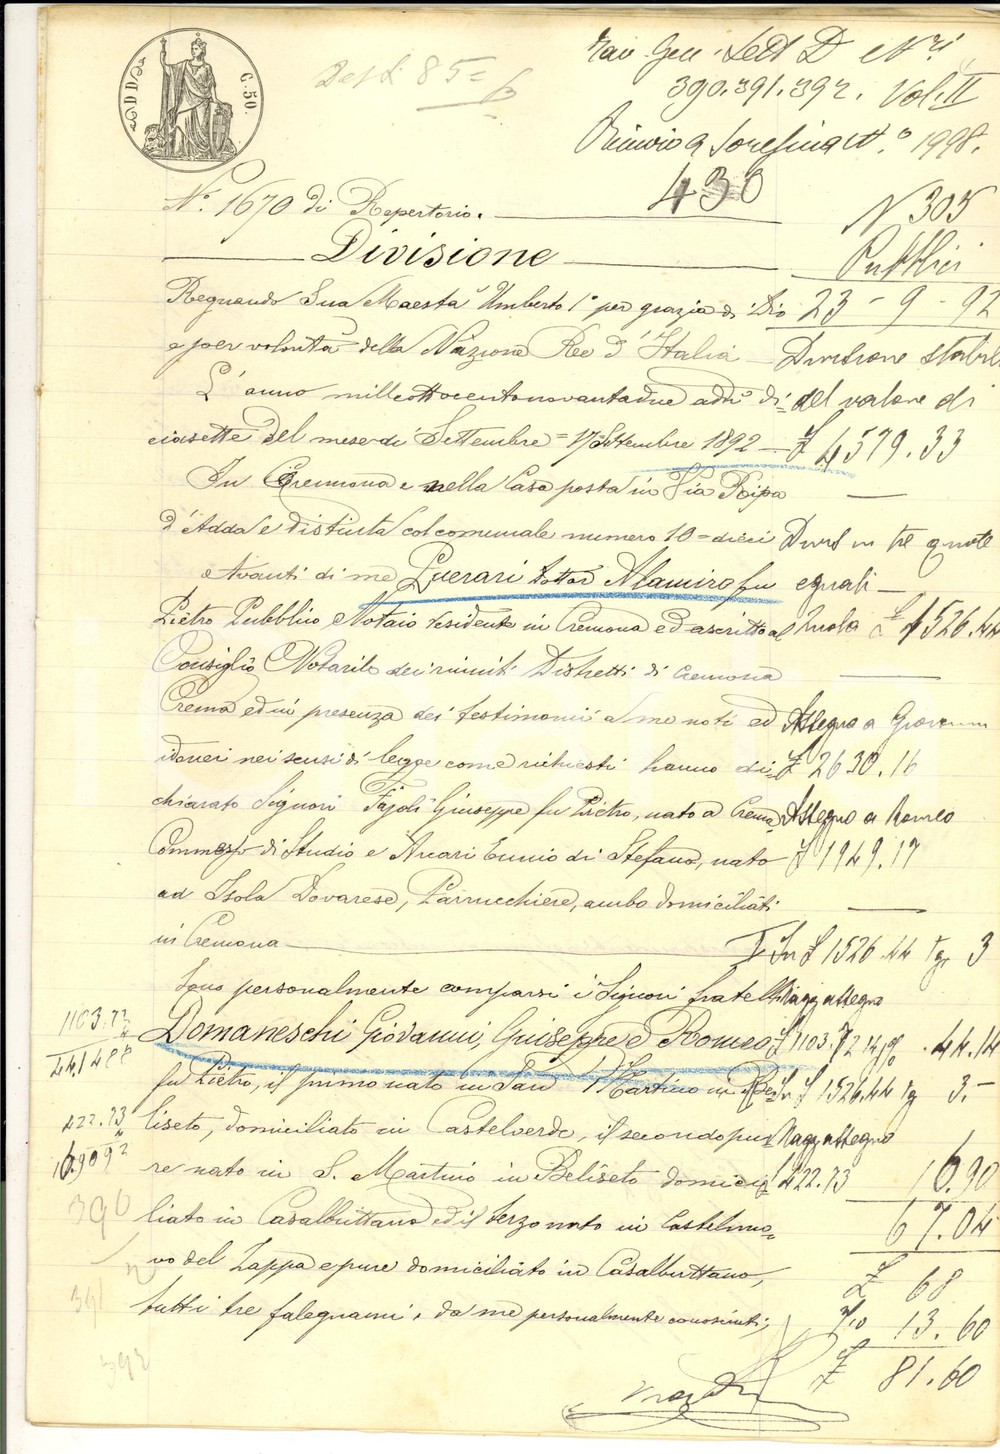 C. 50.
390. 391. 392. Vol. II
Rinvio a Soresina N.° 1998.
430
N.° 1670 di Repertorio.
N 305
Divisione
Pubblici
Regnando Sua Maestà Umberto 1° per grazia di Dio
23 - 9 - 92
e per volontà della Nazione Re d'Italia
Divisione stabili
L'anno milleottocentonovantadue addì di=
del valore di
ciasette del mese di Settembre = 17 Settembre 1892 —
£ 4579.33
In Cremona e nella Casa posta in Via Ripa
d'Adda e distinta col comunale numero 10 = dieci
Divis in tre quote
Avanti di me Guerari Dottor Alamiro fu
eguali —
Pietro Pubblico Notaio residente in Cremona ed ascritto al
£ 1526.44
Consiglio Notarile dei riuniti Distretti di Cremona
Crema ed in presenza dei testimonii a me noti ed
Assegno a Giovanni
idonei nei sensi di legge come richiesti hanno di=
£ 2630.16
chiarato Signori Fajoli Giuseppe fu Pietro, nato a Crema,
Assegno a Romeo
Commesso di Studio e Arcari Ennio di Stefano, nato
£ 1949.17
ad Isola Dovarese, Parrucchiere, ambo domiciliati
in Cremona
In £ 1526.44 3
Sono personalmente comparsi i Signori fratelli
Magg assegno
1103.72
Domaneschi Giovanni, Giuseppe e Romeo
£ 1103.72 44.14
441488
fu Pietro, il primo nato in San Martino in Be
In £ 1526.44 3.-
422.73
liseto, domiciliato in Castelverde, il secondo pu
Magg assegno
16.9092
re nato in S. Martino in Beliseto domici
£ 422.73 16.90
390
liato in Casalbuttano ed il terzo nato in Castelnuo=
67.04
vo del Zappa e pure domiciliato in Casalbuttano,
£ 68
391
tutti tre falegnami, da me personalmente conosciuti;
13.60
392
£ 81.60